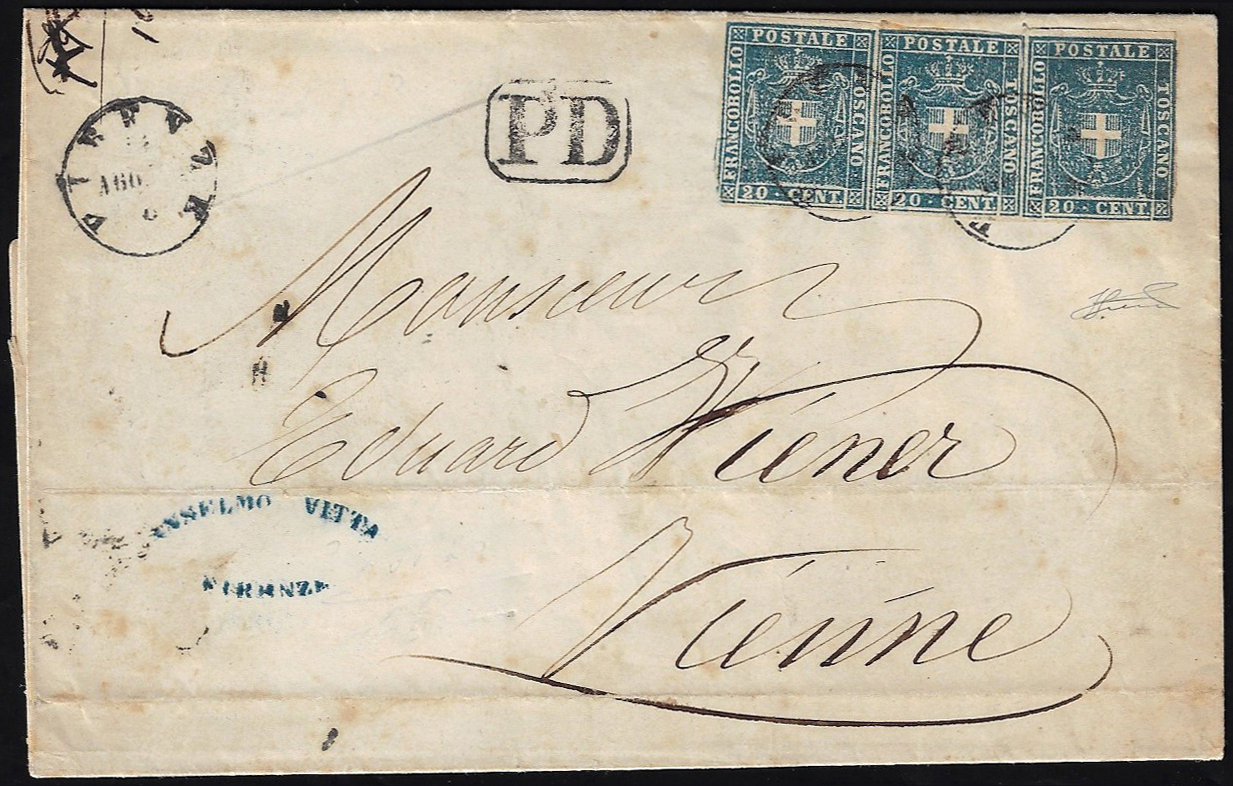 PD
FIRENZE
AGO
FRANCOBOLLO POSTALE TOSCANO
20 · CENT.
FRANCOBOLLO POSTALE TOSCANO
20 · CENT.
FRANCOBOLLO POSTALE TOSCANO
20 · CENT.
Monsieur
Eduard Wiener
ANSELMO VITTA
FIRENZE
Vienne